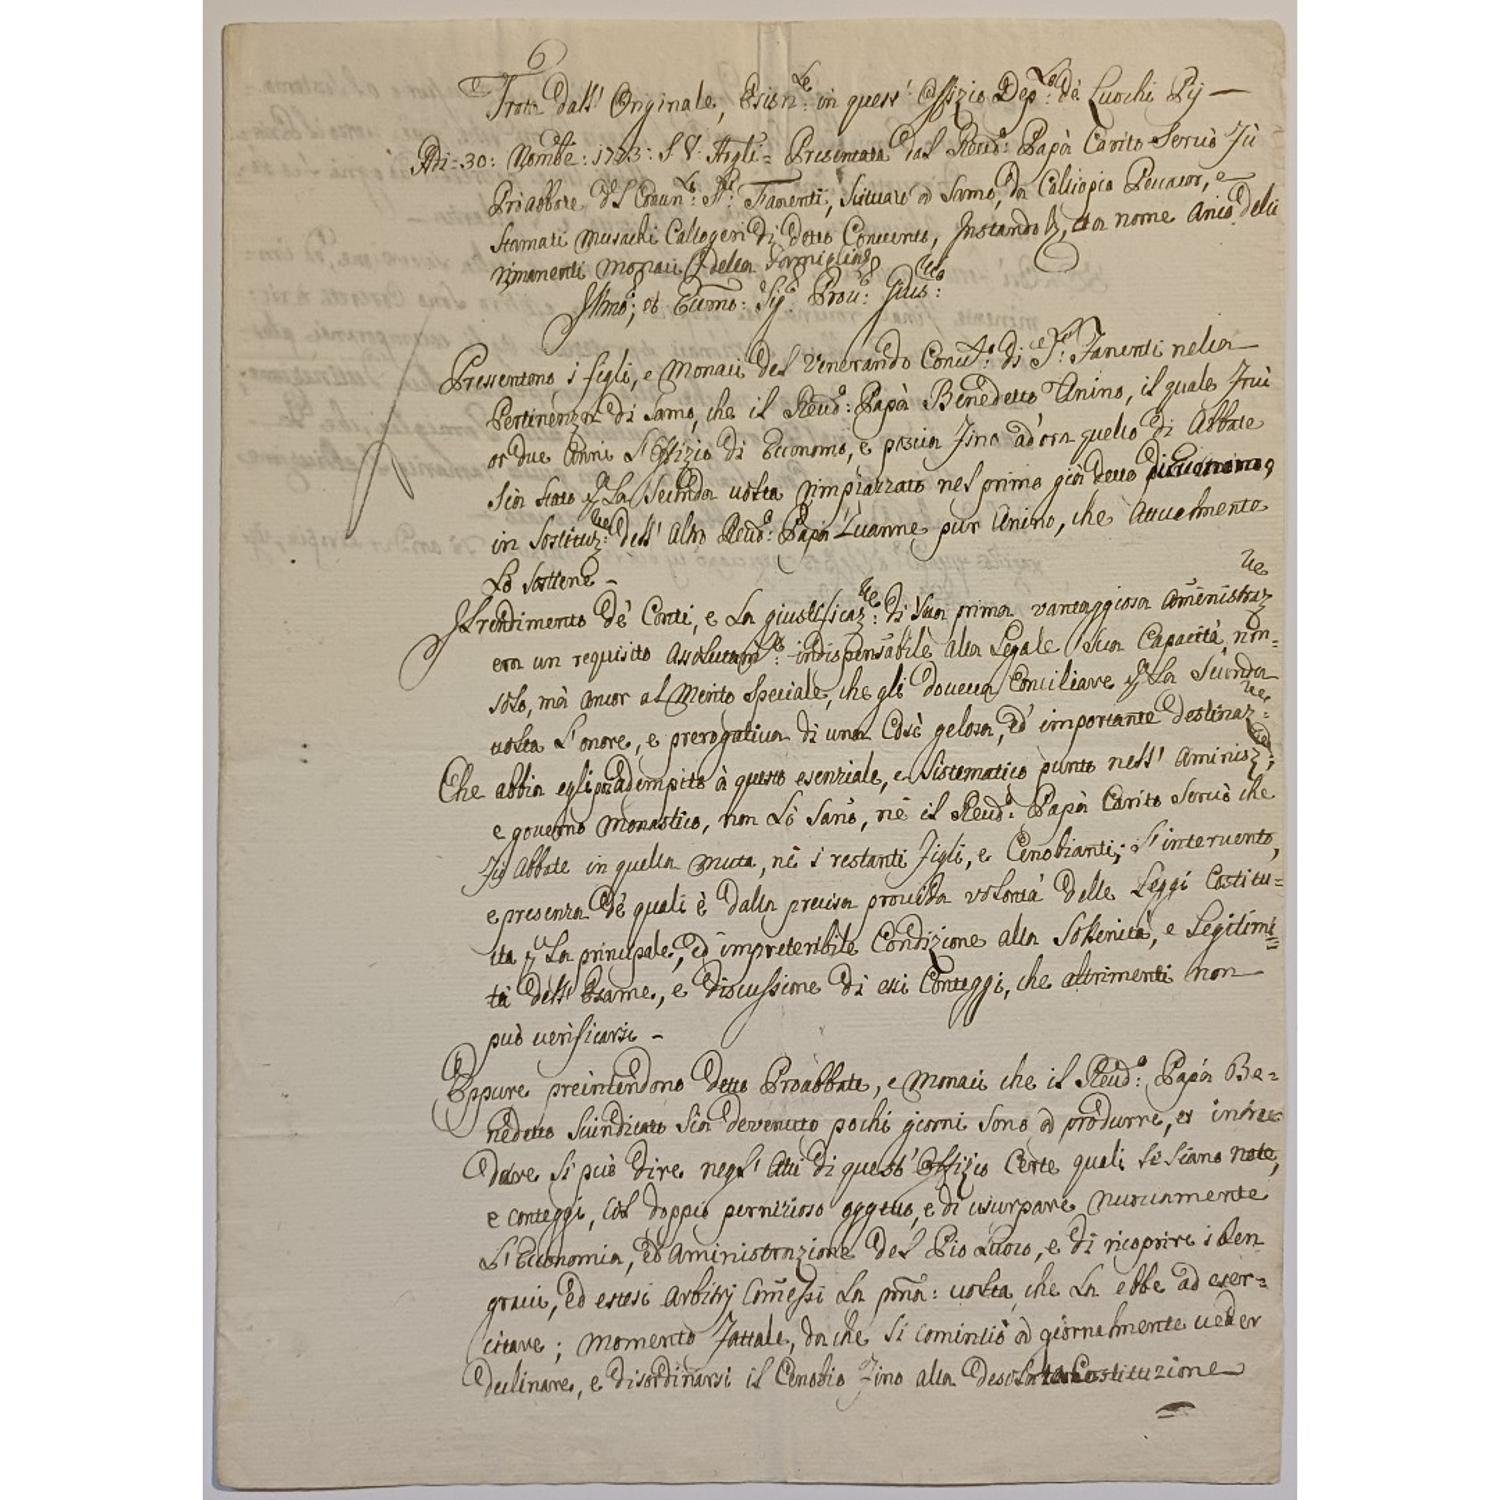 Tratta dall' Originale, Esisn.te in quest' Offizio Dep.to de Luochi Pij —
Adi = 30: Nombe: 1773: S: V: Presentata dal Reud.o: Papà Carito Seruò fù
Priabbate del Conun.to S.ti: Fanenti, situato a Samo, da Calliopio e
Stamati Musachi Callogeri di detto Conuento, Instando a nome anco delli
rimanenti Monaci della Formiglia
Illmo; et Eccmo: Sig.r Prou.r Gius:
Pressentono i figli, e Monaci del Venerando Conu.to: di S.ti: Fanenti nella
Pertinenza di Samo, che il Reud.o: Papà Benedetto Anino, il quale
or due Anni l'Offizio di Economo, e poscia fino ad'ora quello di Abbate
sia stato p la secunda uolta rimpiazzato nel primo già detto
in Sostituz.ne: dell' altro Reud.o: Papà Zuanne pur Anino, che attualmente
Lo sostiene —
Il rendimento de' Conti, e la giustificaz.ne: di sua prima vantaggiosa amēnistraz.ne
era un requisito assolutam.te: indispensabile alla Legale sua Capacità, non =
solo, mà ancor al Merito speciale, che gli doueua Conciliare p la Seconda
uolta l'onore, e prerogatiua di una Così gelosa, ed' importante destinaz.ne:
Che abbia egli adempito à questo esenziale, e sistematico punto nell' Aminisz.ne;
e gouerno Monastico, non lo sanō, nè il Reud.o: Papà Carito Seruò che
fù Abbate in quella muta, nè i restanti figli, e Cenobianti; l'interuento,
e presenza de' quali è dalla precisa prouida volontà delle Leggi Costitu=
ita p la principale, ed' impreteribile Condizione alla Solenità, e Legitimi=
tà dell' Esame, e discussione di essi Conteggi, che altrimenti non
può uerificarsi —
Eppure preintendono detto Proabbate, e Monaci che il Reud.o: Papà Be=
nedetto Suindicato sia deuenuto pochi giorni sono à produrre, et intra
durre si può dire negl' Atti di quest' Offizio Certe quali si siano note,
e conteggi, col doppio pernizioso oggetto, e di usurpare nuouamente
l'Economia, ed aministrazione del Pio Luoco, e di ricoprire i ben
graui, ed estesi arbitrj Comessi la prma: uolta, che la ebbe ad eser=
citare; momento fattale, da che si cominciò à giornalmente ueder
declinare, e disordinarsi il Cenobio fino alla desolata Costituzione